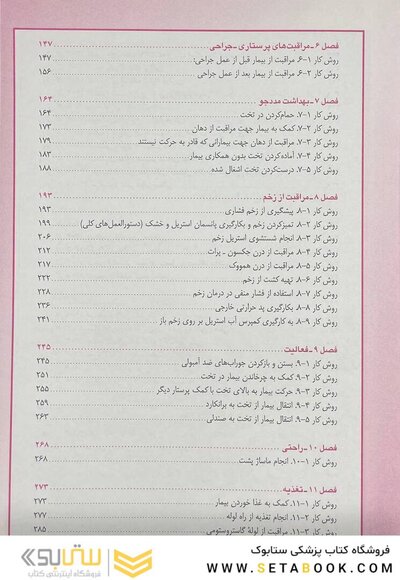 فصل ۶ ـ مراقبت‌های پرستاری ـ جراحی ۱۴۷
روش کار ۱-۶. مراقبت از بیمار قبل از عمل جراحی: ۱۴۷
روش کار ۲-۶. مراقبت از بیمار بعد از عمل جراحی ۱۵۶
فصل ۷ ـ بهداشت مددجو ۱۶۴
روش کار ۱-۷. حمام‌کردن در تخت ۱۶۴
روش کار ۲-۷. کمک به بیمار جهت مراقبت از دهان ۱۷۳
روش کار ۳-۷. مراقبت از دهان جهت بیمارانی که قادر به حرکت نیستند ۱۷۹
روش کار ۴-۷. آماده‌کردن تخت بدون همکاری بیمار ۱۸۳
روش کار ۵-۷. درست‌کردن تخت اشغال شده ۱۸۸
فصل ۸ ـ مراقبت از زخم ۱۹۳
روش کار ۱-۸. پیشگیری از زخم فشاری ۱۹۳
روش کار ۲-۸. تمیزکردن زخم و بکارگیری پانسمان استریل و خشک (دستورالعمل‌های کلی) ۱۹۹
روش کار ۳-۸. انجام شستشوی استریل زخم ۲۰۶
روش کار ۴-۸. مراقبت از درن جکسون ـ پرات ۲۱۲
روش کار ۵-۸. مراقبت از درن همووک ۲۱۷
روش کار ۶-۸. تهیه کشت از زخم ۲۲۲
روش کار ۷-۸. استفاده از فشار منفی در درمان زخم ۲۲۸
روش کار ۸-۸. بکارگیری پد حرارتی خارجی ۲۳۶
روش کار ۹-۸. به کارگیری کمپرس آب استریل بر روی زخم باز ۲۴۱
فصل ۹ ـ فعالیت ۲۴۵
روش کار ۱-۹. بستن و بازکردن جوراب‌های ضد آمبولی ۲۴۵
روش کار ۲-۹. کمک به چرخاندن بیمار در تخت ۲۵۱
روش کار ۳-۹. حرکت بیمار به بالای تخت با کمک پرستار دیگر ۲۵۵
روش کار ۴-۹. انتقال بیمار از تخت به برانکارد ۲۵۹
روش کار ۵-۹. انتقال بیمار از تخت به صندلی ۲۶۳
فصل ۱۰ ـ راحتی ۲۶۸
روش کار ۱-۱۰. انجام ماساژ پشت ۲۶۸
فصل ۱۱ ـ تغذیه ۲۷۳
روش کار ۱-۱۱. کمک به غذا خوردن بیمار ۲۷۳
روش کار ۲-۱۱. انجام تغذیه از راه لوله ۲۷۷
روش کار ۳-۱۱. مراقبت از لولهٔ گاستروستومی ۲۸۵
فروشگاه کتاب پزشکی ستابوک
WWW.SETABOOK.COM
ستابوک
فروشگاه اینترنتی کتاب